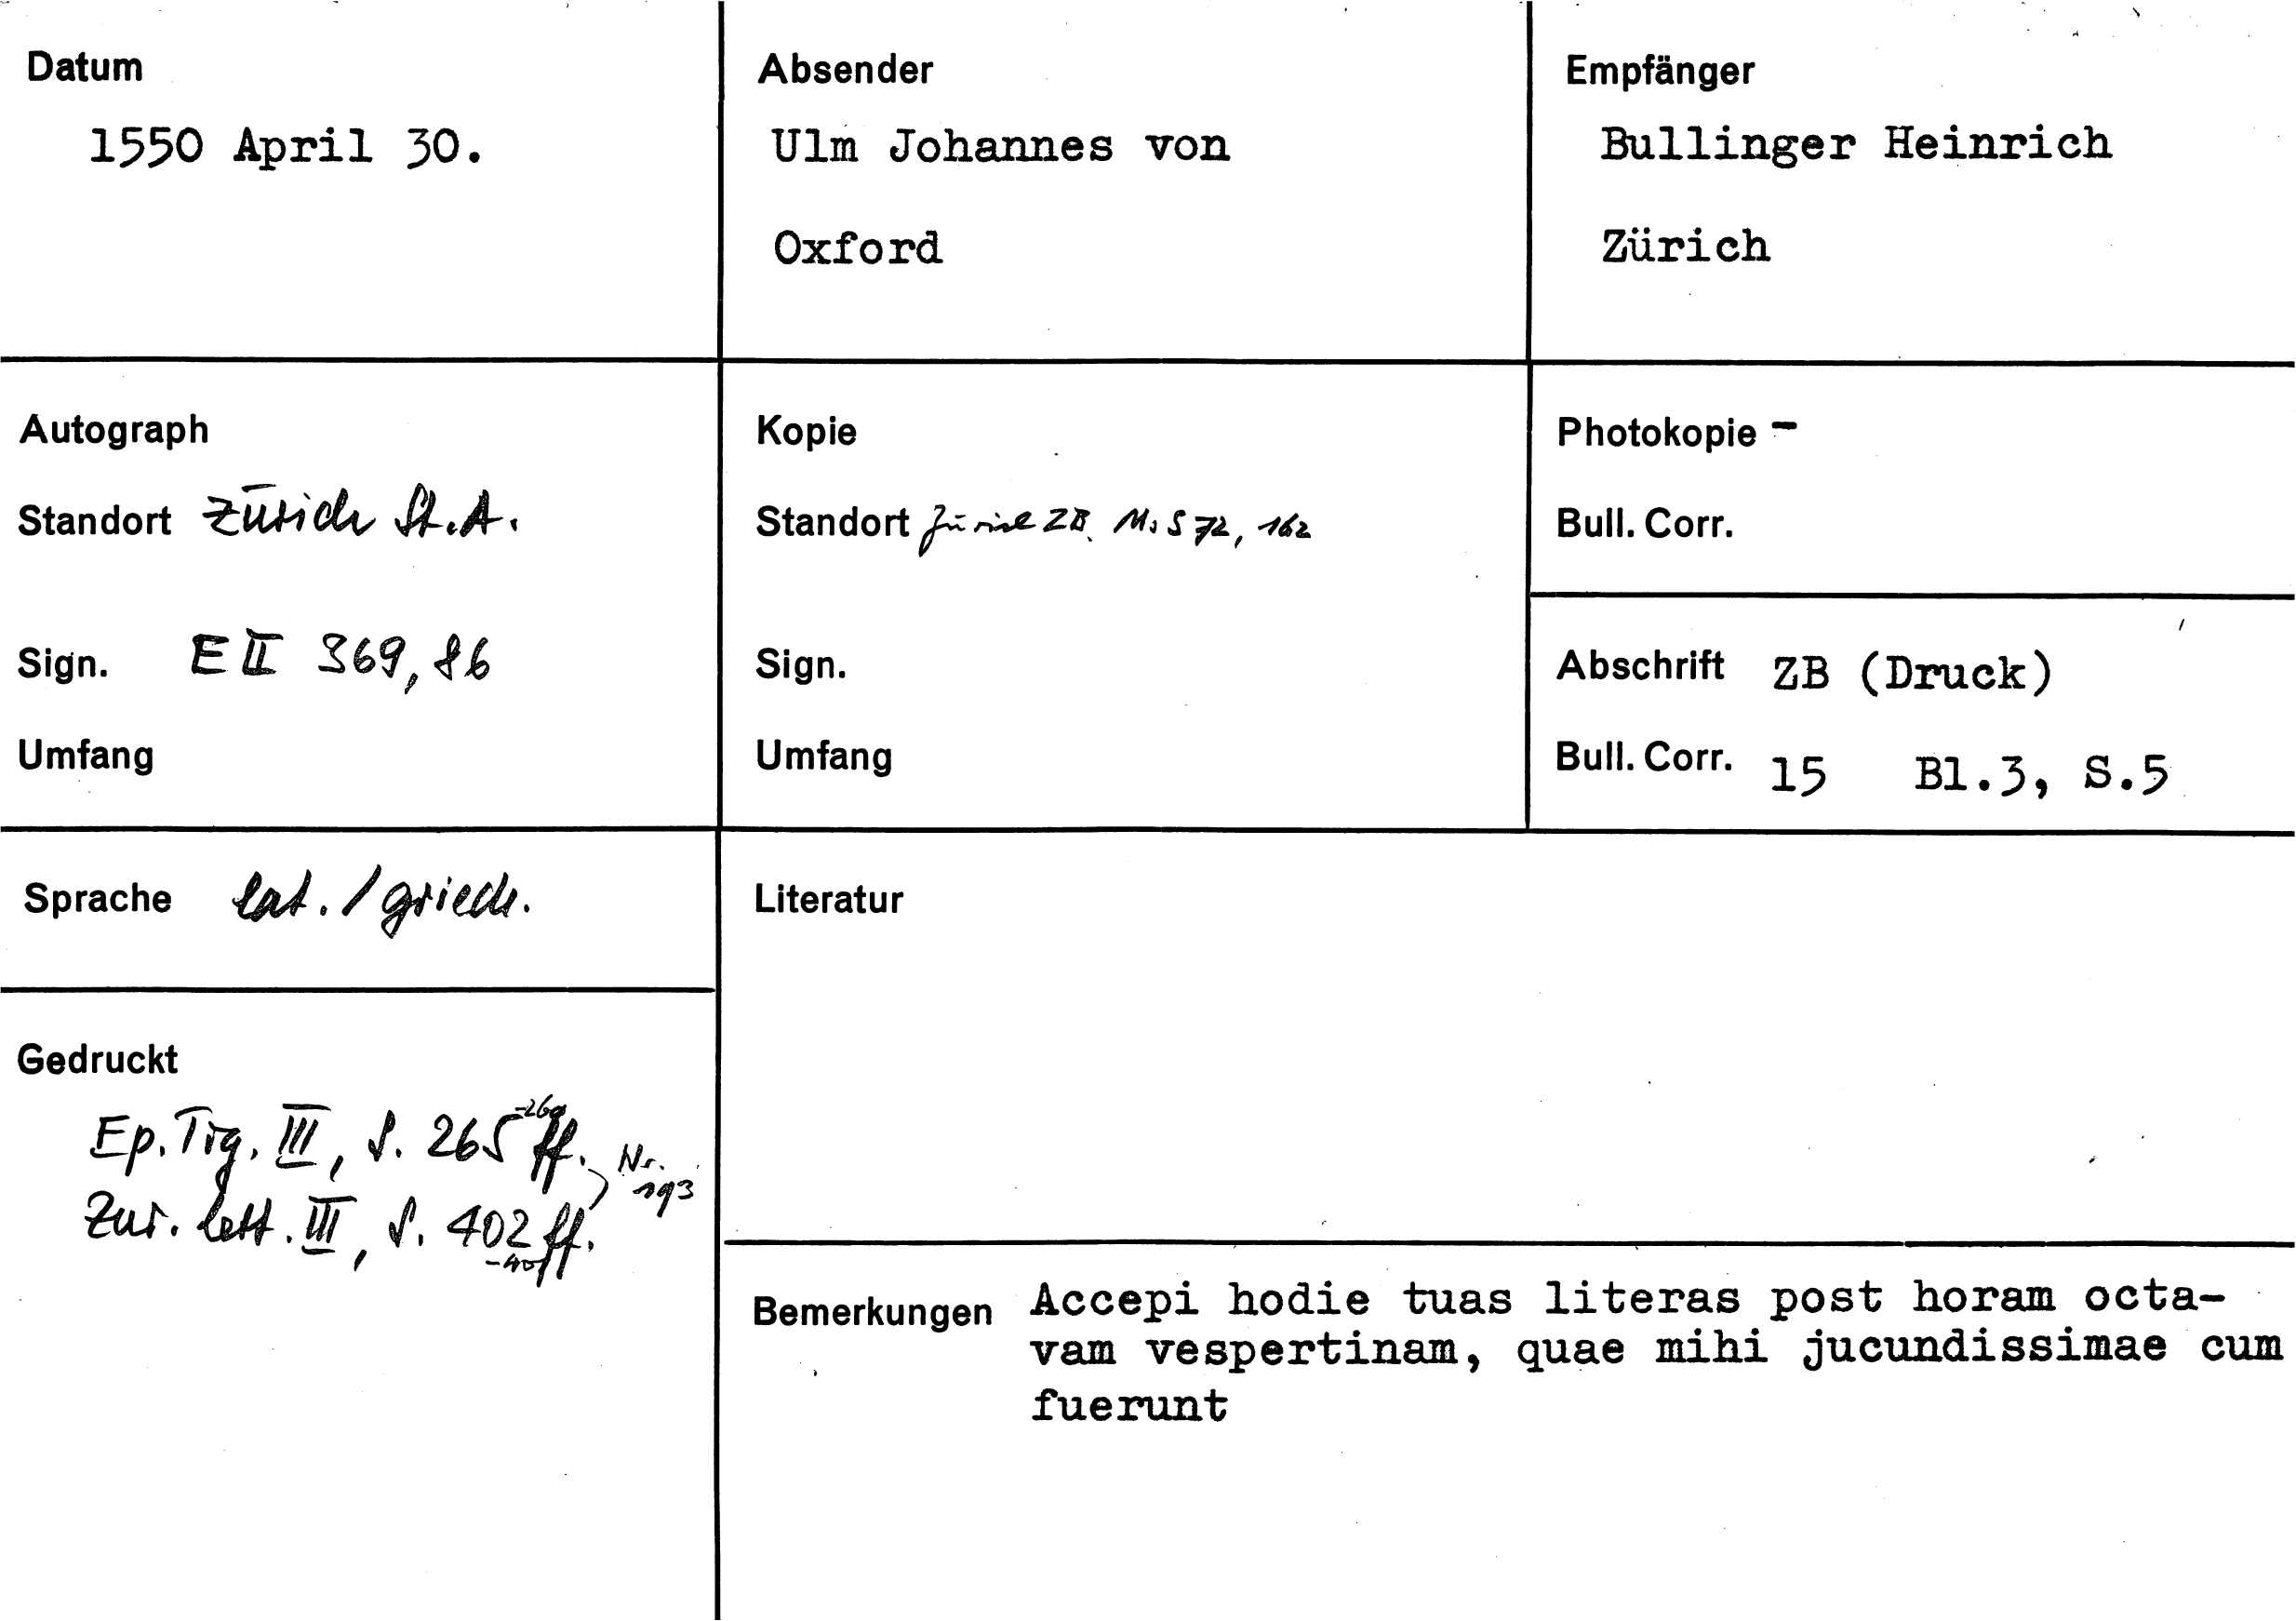 Datum
1550 April 30.
Absender
Ulm Johannes von
Oxford
Empfänger
Bullinger Heinrich
Zürich
Autograph
Standort Zürich St.A.
Sign. E II 369, 86
Umfang
Kopie
Standort Zürich ZB. Ms S 72, 162
Sign.
Umfang
Photokopie -
Bull. Corr.
Abschrift ZB (Druck)
Bull. Corr. 15 Bl.3, S.5
Sprache lat. / griech.
Gedruckt
Ep. Tig. III, S. 265-269 ff. Nr. 193
Zur. lett. III, S. 402 ff.
Literatur
Bemerkungen Accepi hodie tuas literas post horam octa-
vam vespertinam, quae mihi jucundissimae cum
fuerunt